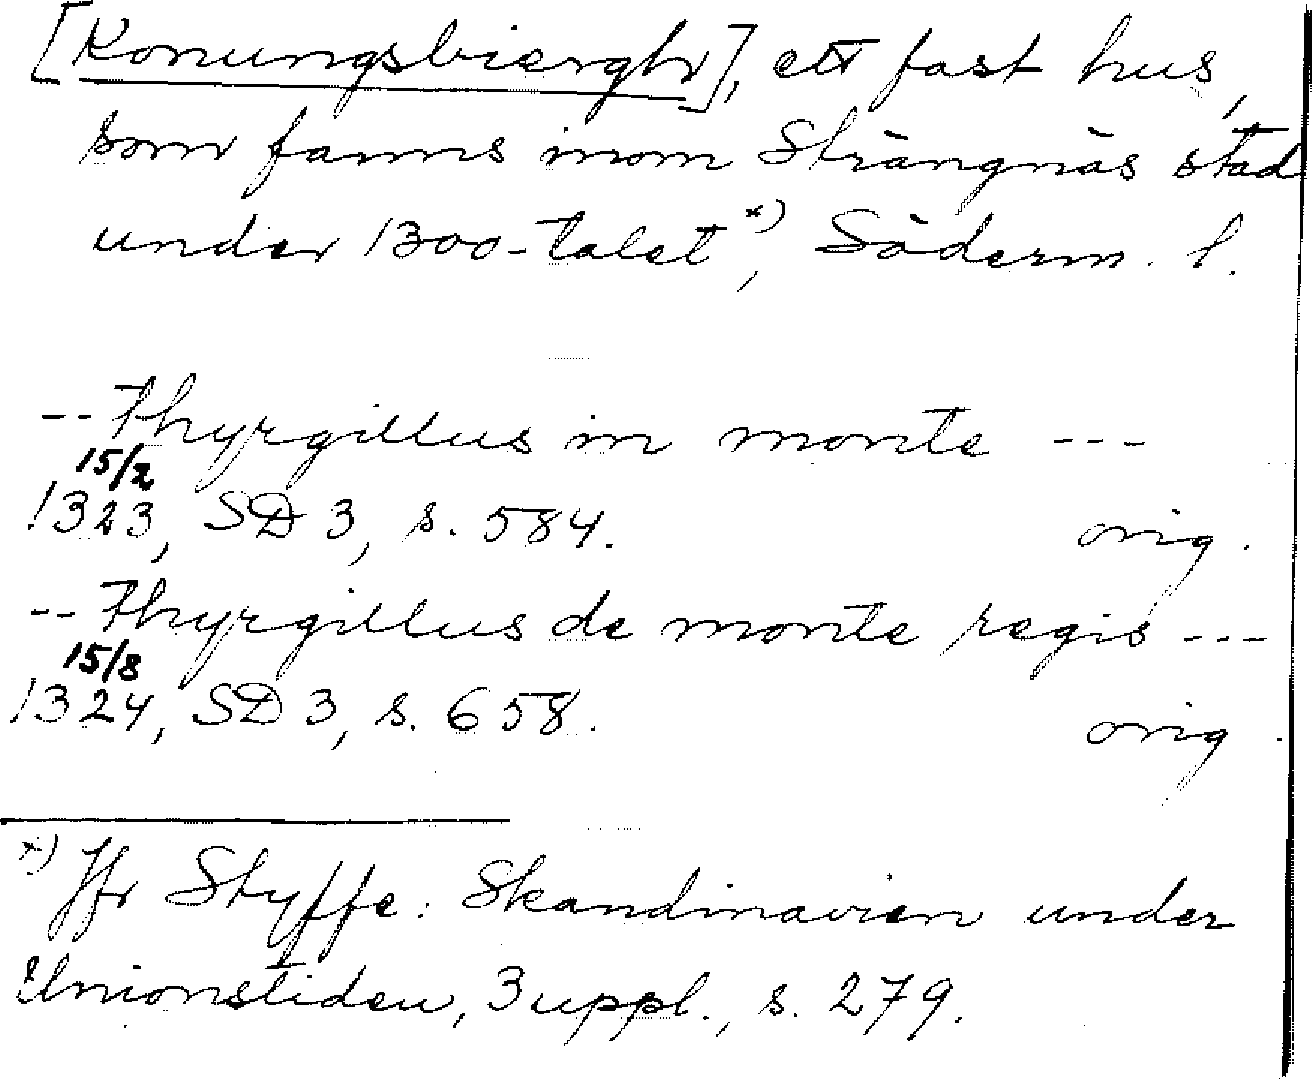 [Konungsbiærghr], ett fast hus,
som fanns inom Strängnäs stad
under 1300-talet x), Söderm. l.
-- Thyrgillus in monte ---
15/2
1323, SD 3, s. 584. orig.
-- Thyrgillus de monte regis ---
15/8
1324, SD 3, s. 658. orig.
x) Jfr Styffe: Skandinavien under
Unionstiden, 3 uppl., s. 279.